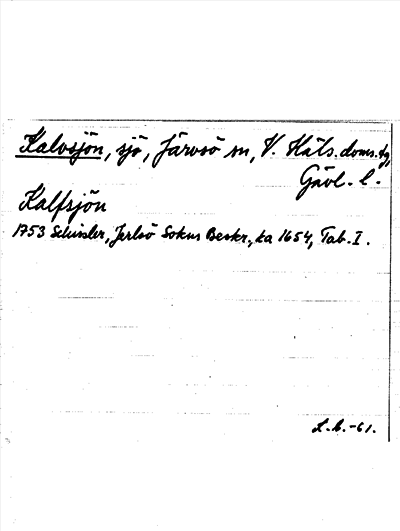 Kalvsjön, sjö, Järvsö sn, V. Häls. doms.,
Gävl. l.
Kalfsjön
1753 Schissler, Jerlsö Sokns Beskr., ka 1654, Tab. I.
L.h.-61.